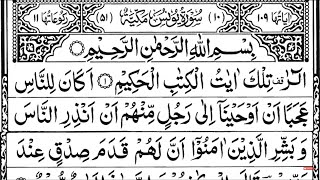 اٰیاتها ١٠٩ (١٠) سُوْرَةُ يُوْنُسَ مَكِّيَّةٌ (٥١) رکوعاتها ١١
بِسْمِ اللّٰهِ الرَّحْمٰنِ الرَّحِيْمِ
الٓرٰ ۫ تِلْكَ اٰيٰتُ الْكِتٰبِ الْحَكِيْمِ اَكَانَ لِلنَّاسِ
عَجَبًا اَنْ اَوْحَيْنَاۤ اِلٰى رَجُلٍ مِّنْهُمْ اَنْ اَنْذِرِ النَّاسَ
وَ بَشِّرِ الَّذِيْنَ اٰمَنُوْۤا اَنَّ لَهُمْ قَدَمَ صِدْقٍ عِنْدَ